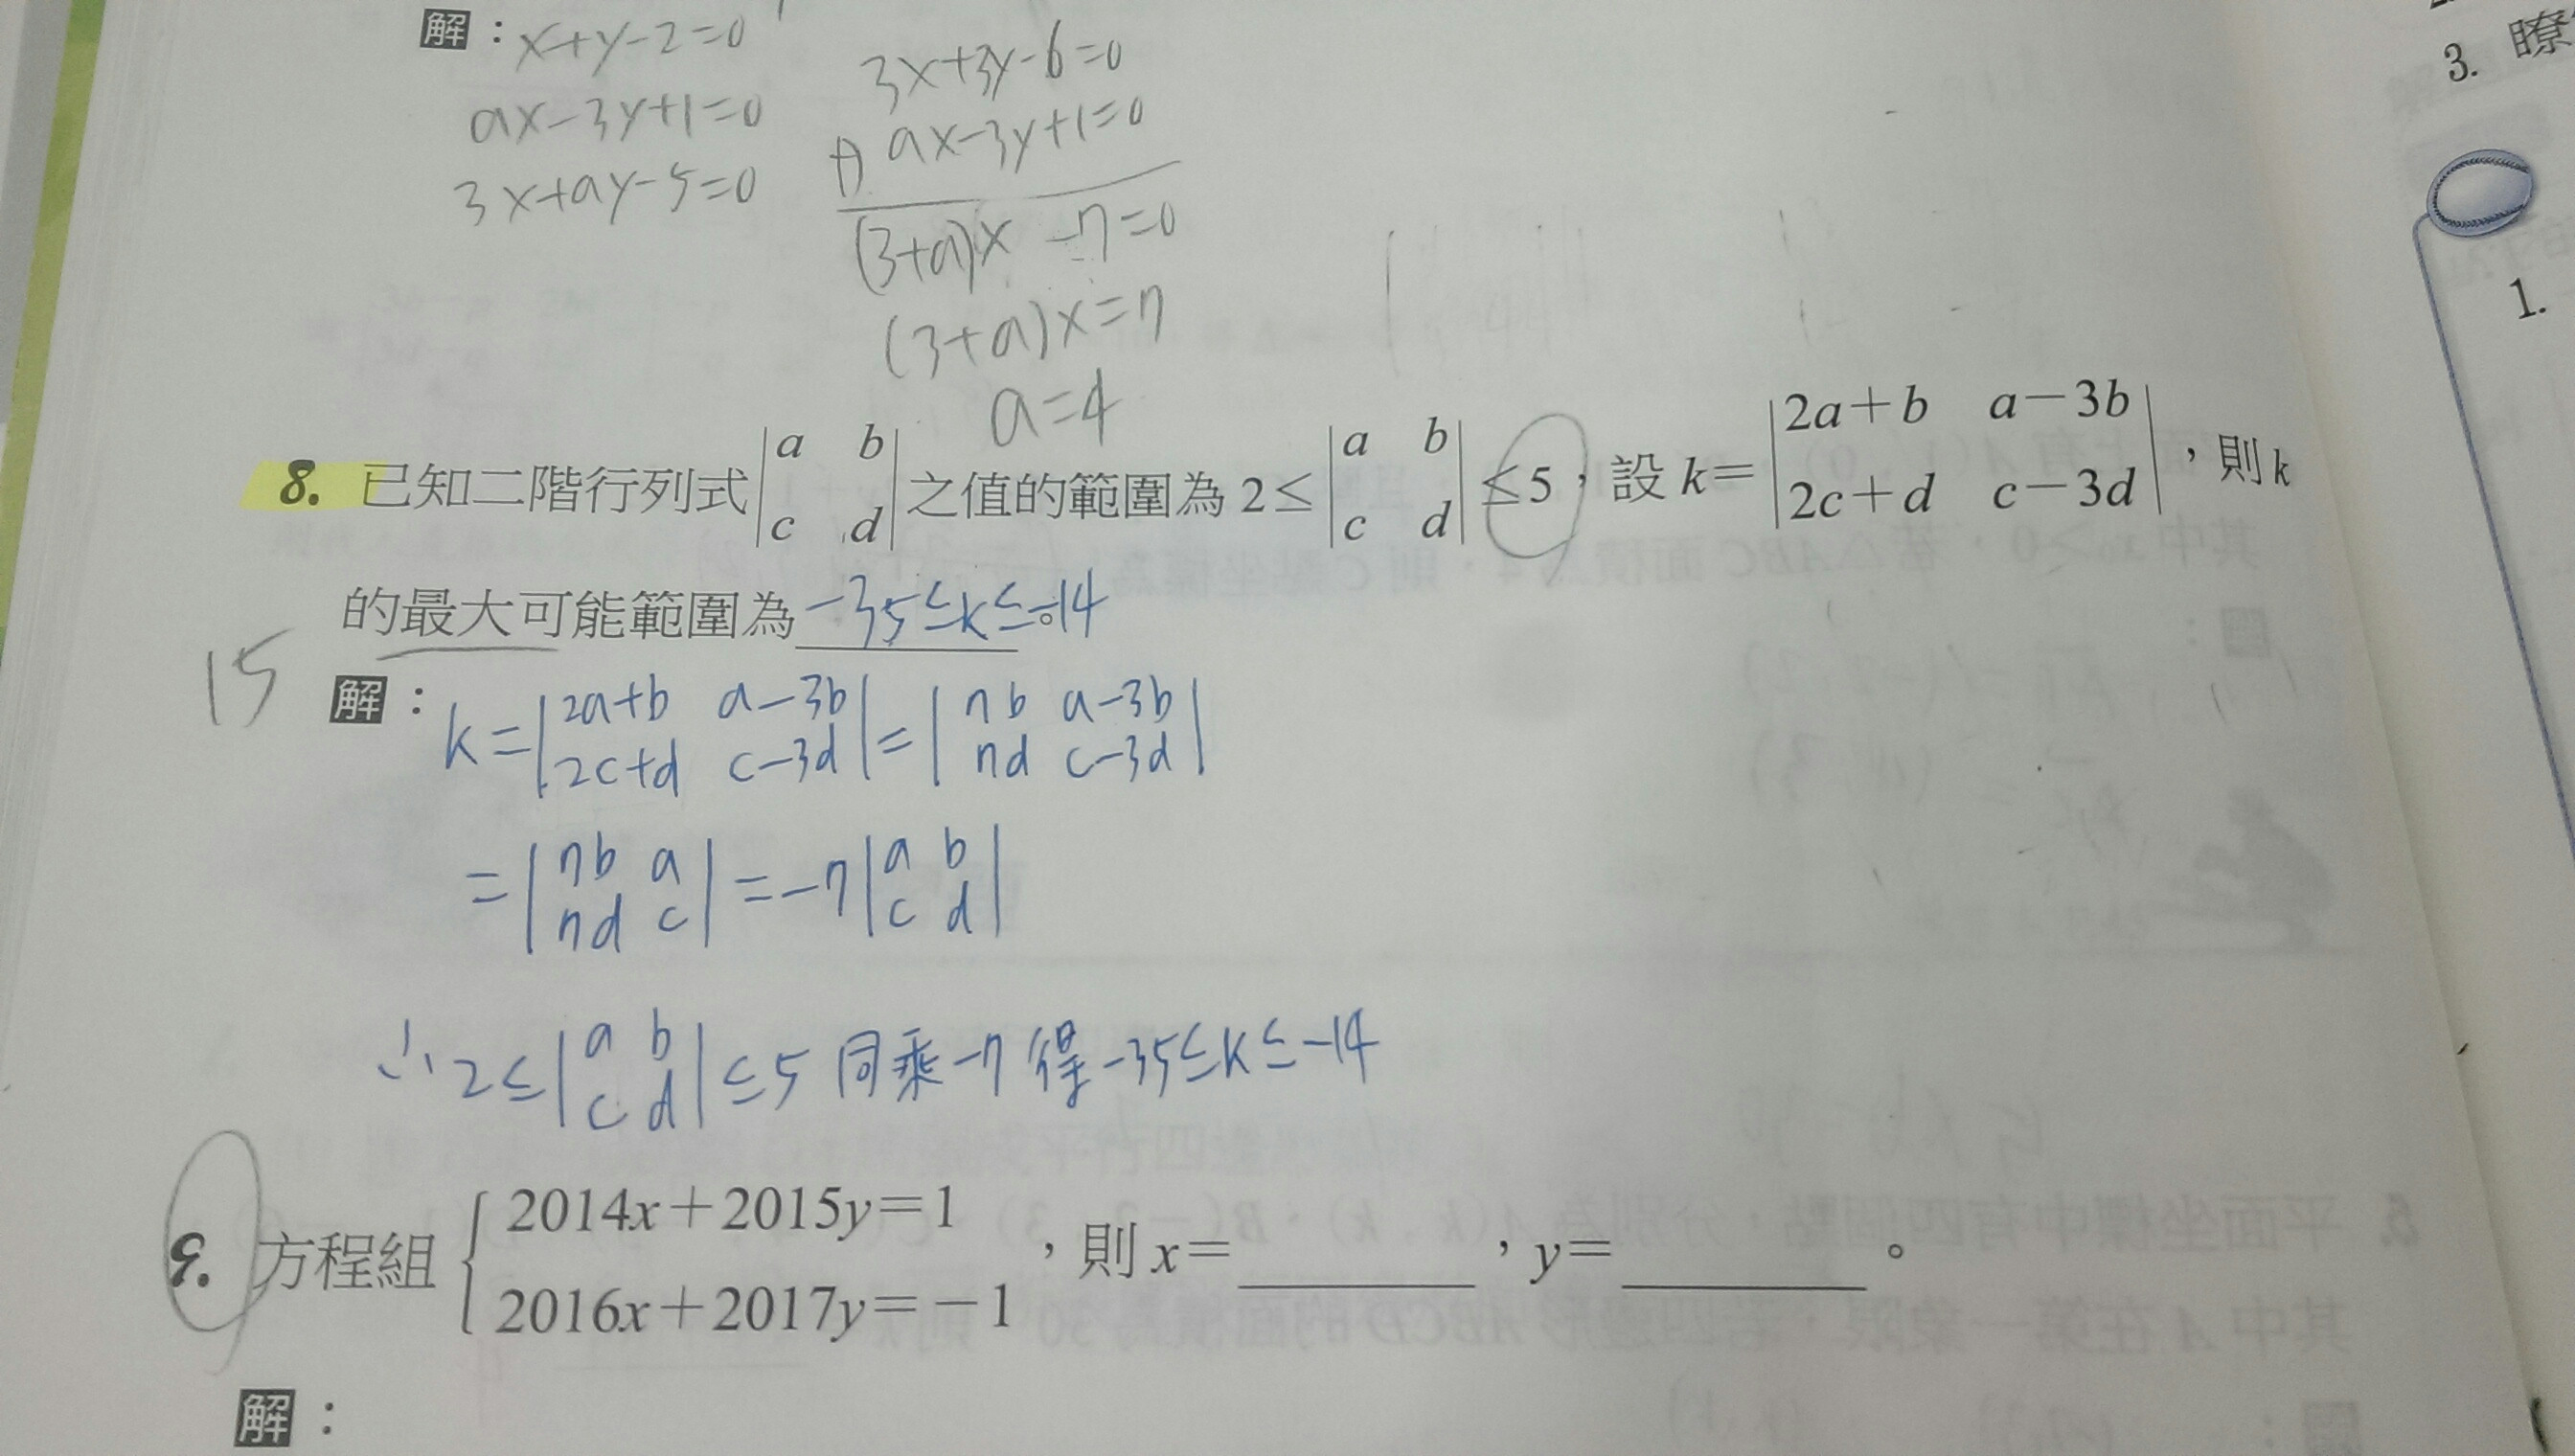 解：x+y-2=0
ax-3y+1=0
3x+ay-5=0
3x+3y-6=0
+) ax-3y+1=0
(3+a)x -7=0
(3+a)x=7
a=4
8. 已知二階行列式|a b; c d|之值的範圍為 2≤|a b; c d|≤5，設 k=|2a+b a-3b; 2c+d c-3d|，則 k
的最大可能範圍為 -35≤k≤-14。
15
解：k=|2a+b a-3b; 2c+d c-3d|=|7b a-3b; 7d c-3d|
=|7b a; 7d c|=-7|a b; c d|
∴2≤|a b; c d|≤5 同乘-7 得 -35≤k≤-14
9. 方程組{2014x+2015y=1; 2016x+2017y=-1，則 x=____，y=____。
解：
3. 瞭
1.